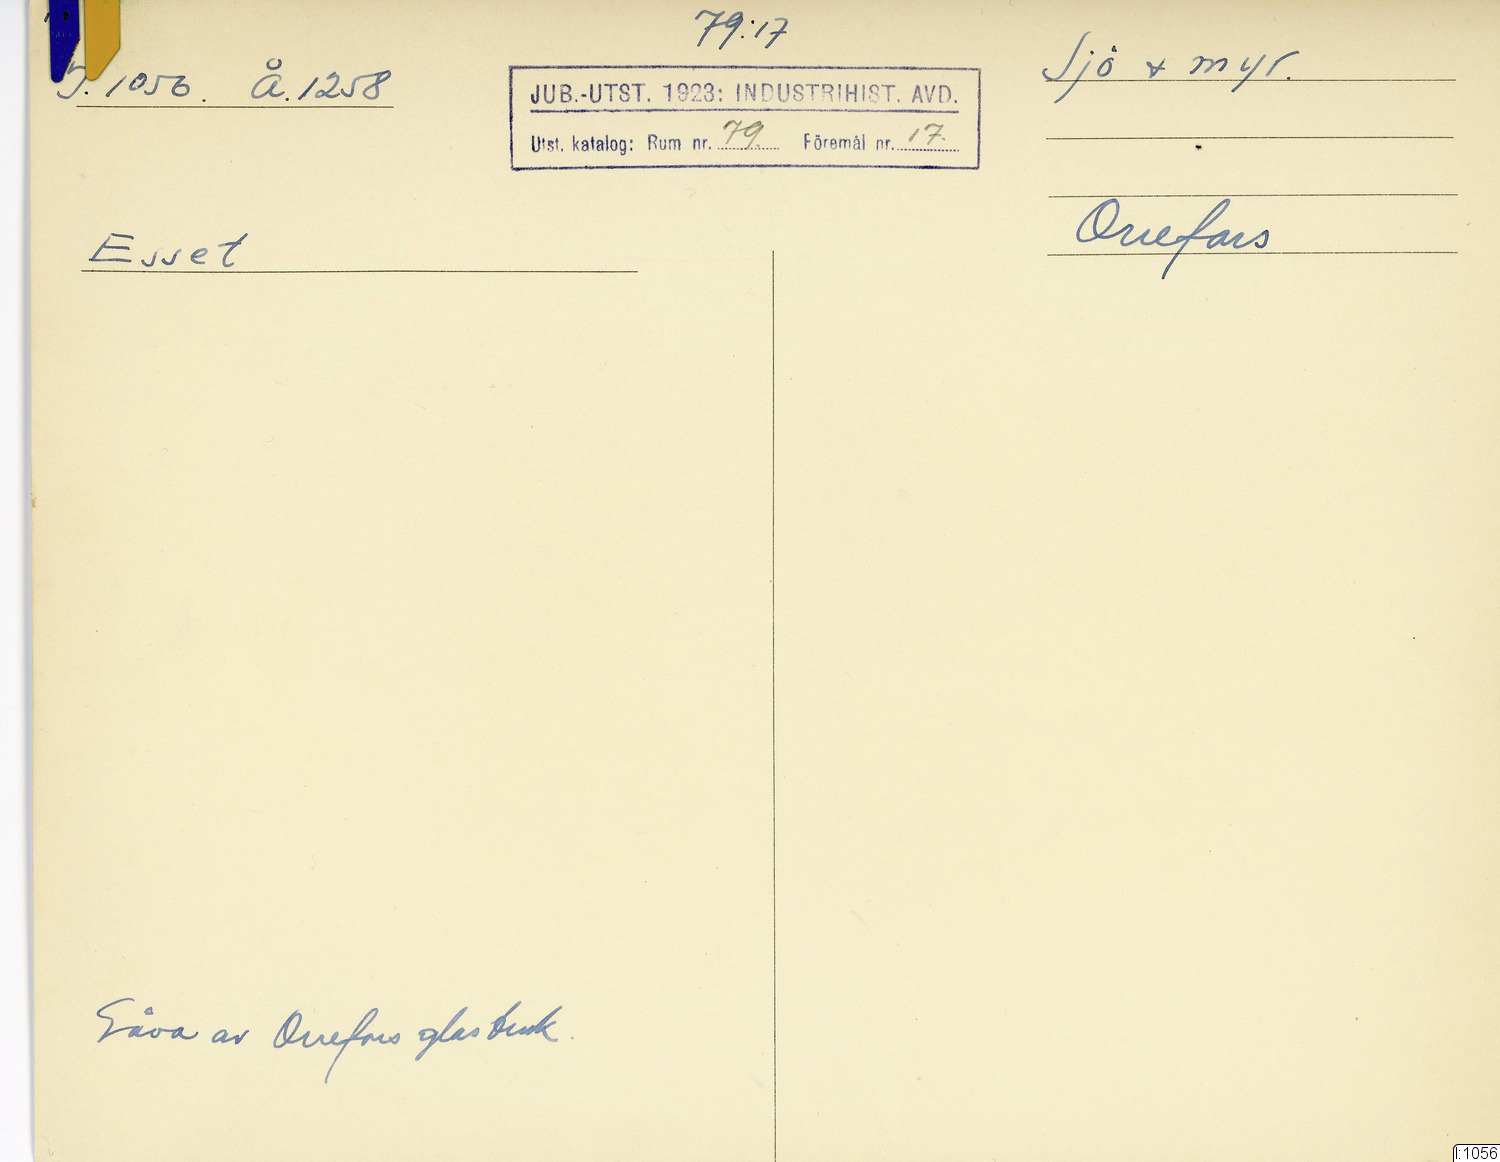 79:17
J. 1056. Å. 1258
JUB.-UTST. 1923: INDUSTRIHIST. AVD.
Utst. katalog: Rum nr. 79. Föremål nr. 17.
Sjö & myr.
Orrefors
Esset
Gåva av Orrefors glasbruk.
I:1056